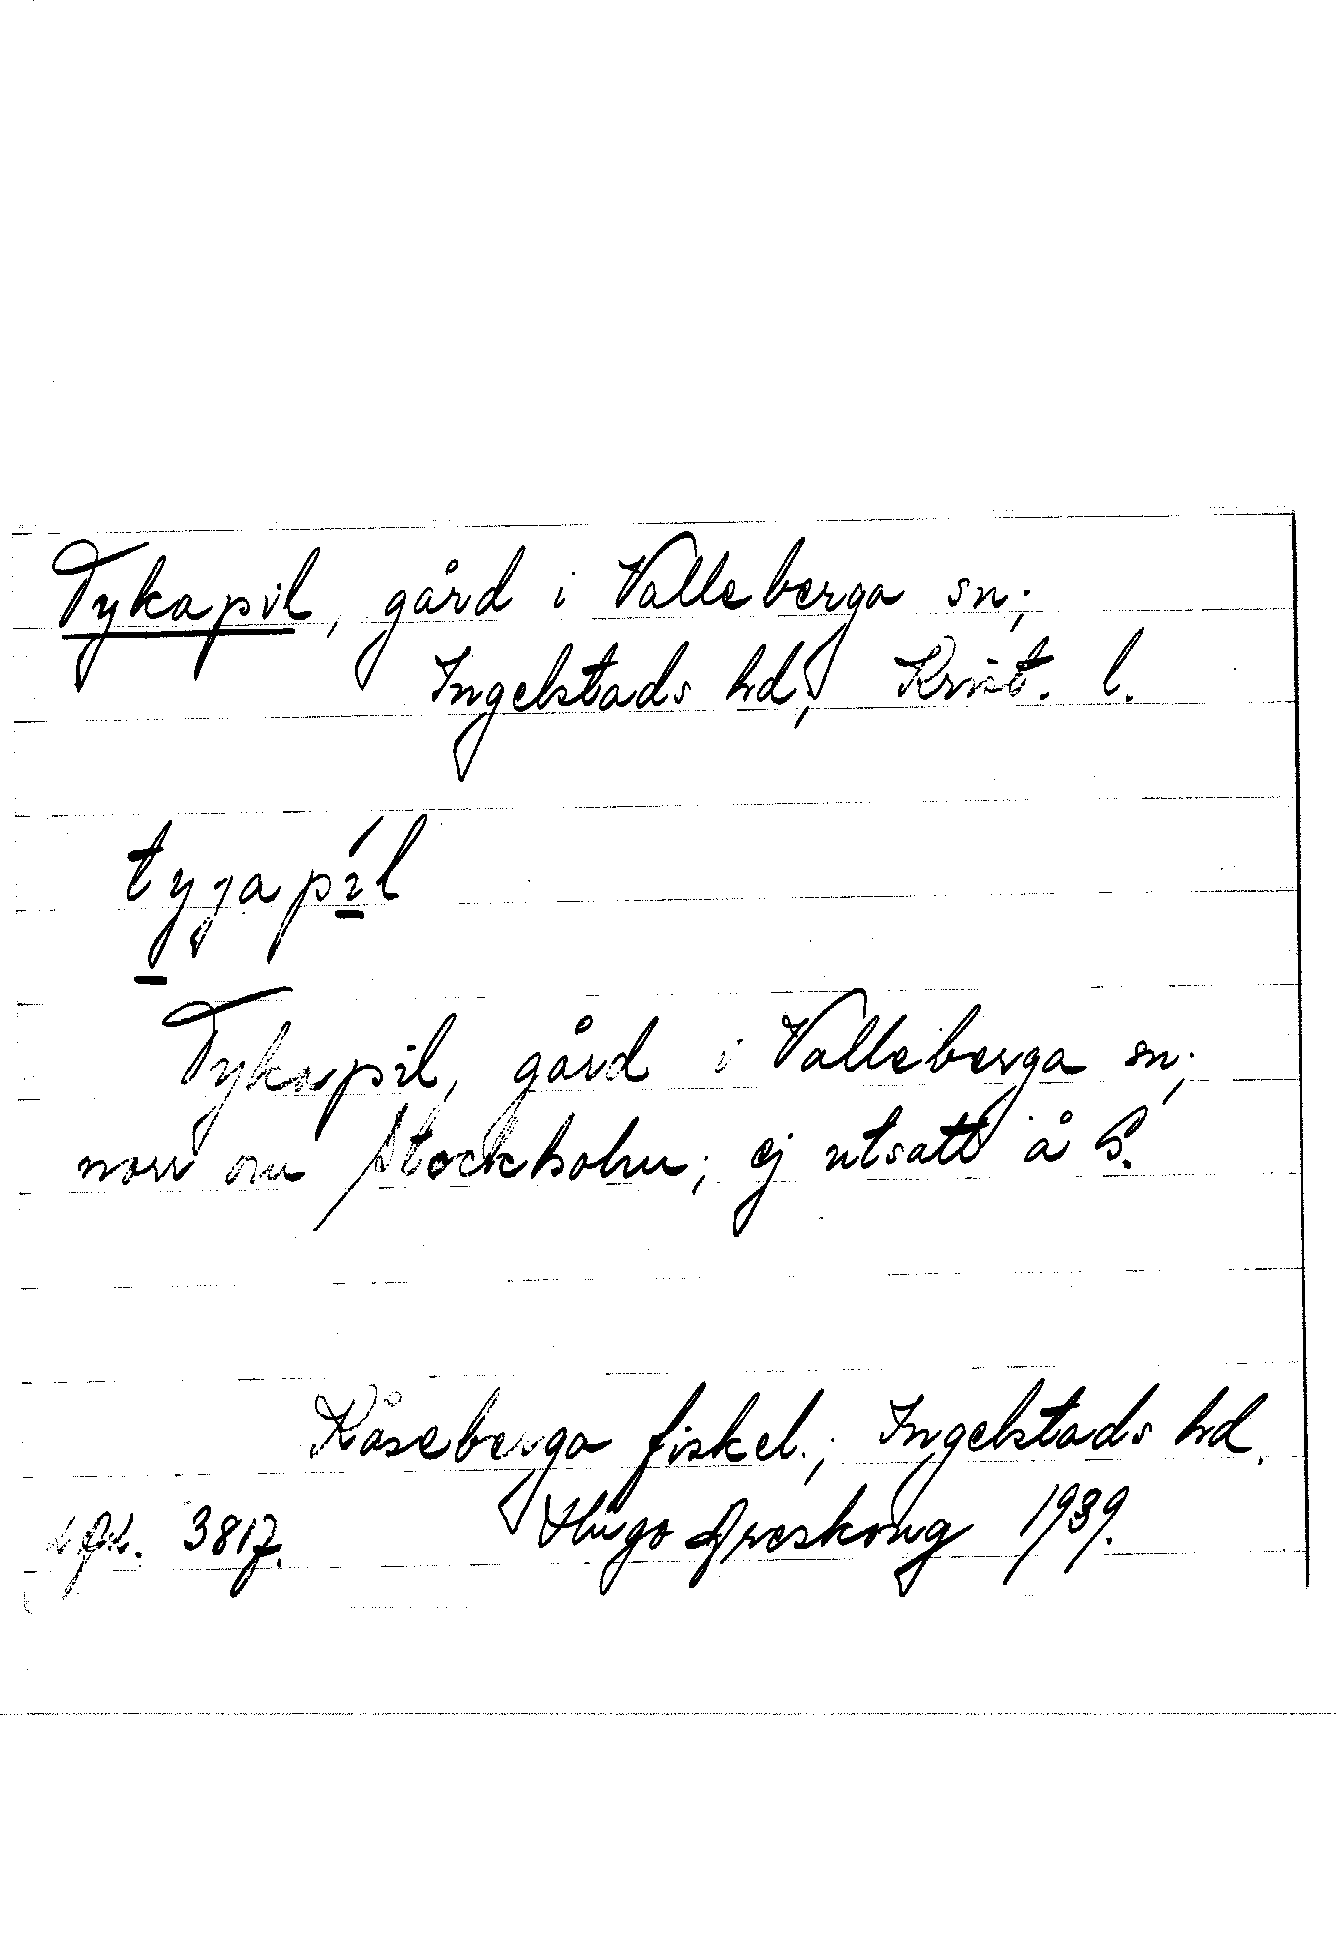 Tykapil, gård i Valleberga sn;
Ingelstads hd, Krist. l.
tygapíl
Tykapil, gård i Valleberga sn;
norr om Stockholm; ej utsatt å
Kåseberga fiskel.; Ingelstads hd.
3817. Hugo Areskoug 1939.